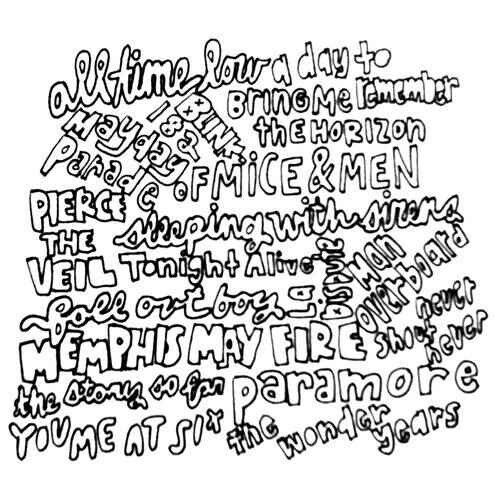 all time low
a day to
remember
BRING ME
thE HORIZON
BLINK
182
Mayday
Parade
OF MICE & MEN
PIERCE
THE
VEIL
sleeping with sirens
Tonight Alive
La
Dispute
Man
overboard
fall out boy
never
shout
never
MEMPHIS MAY FIRE
the story so far
paramore
YOU ME AT SIX
the wonder
years